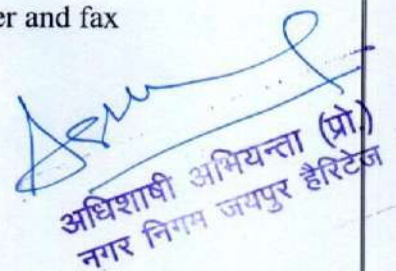 er and fax
अधिशाषी अभियन्ता (प्रो.)
नगर निगम जयपुर हैरिटेज